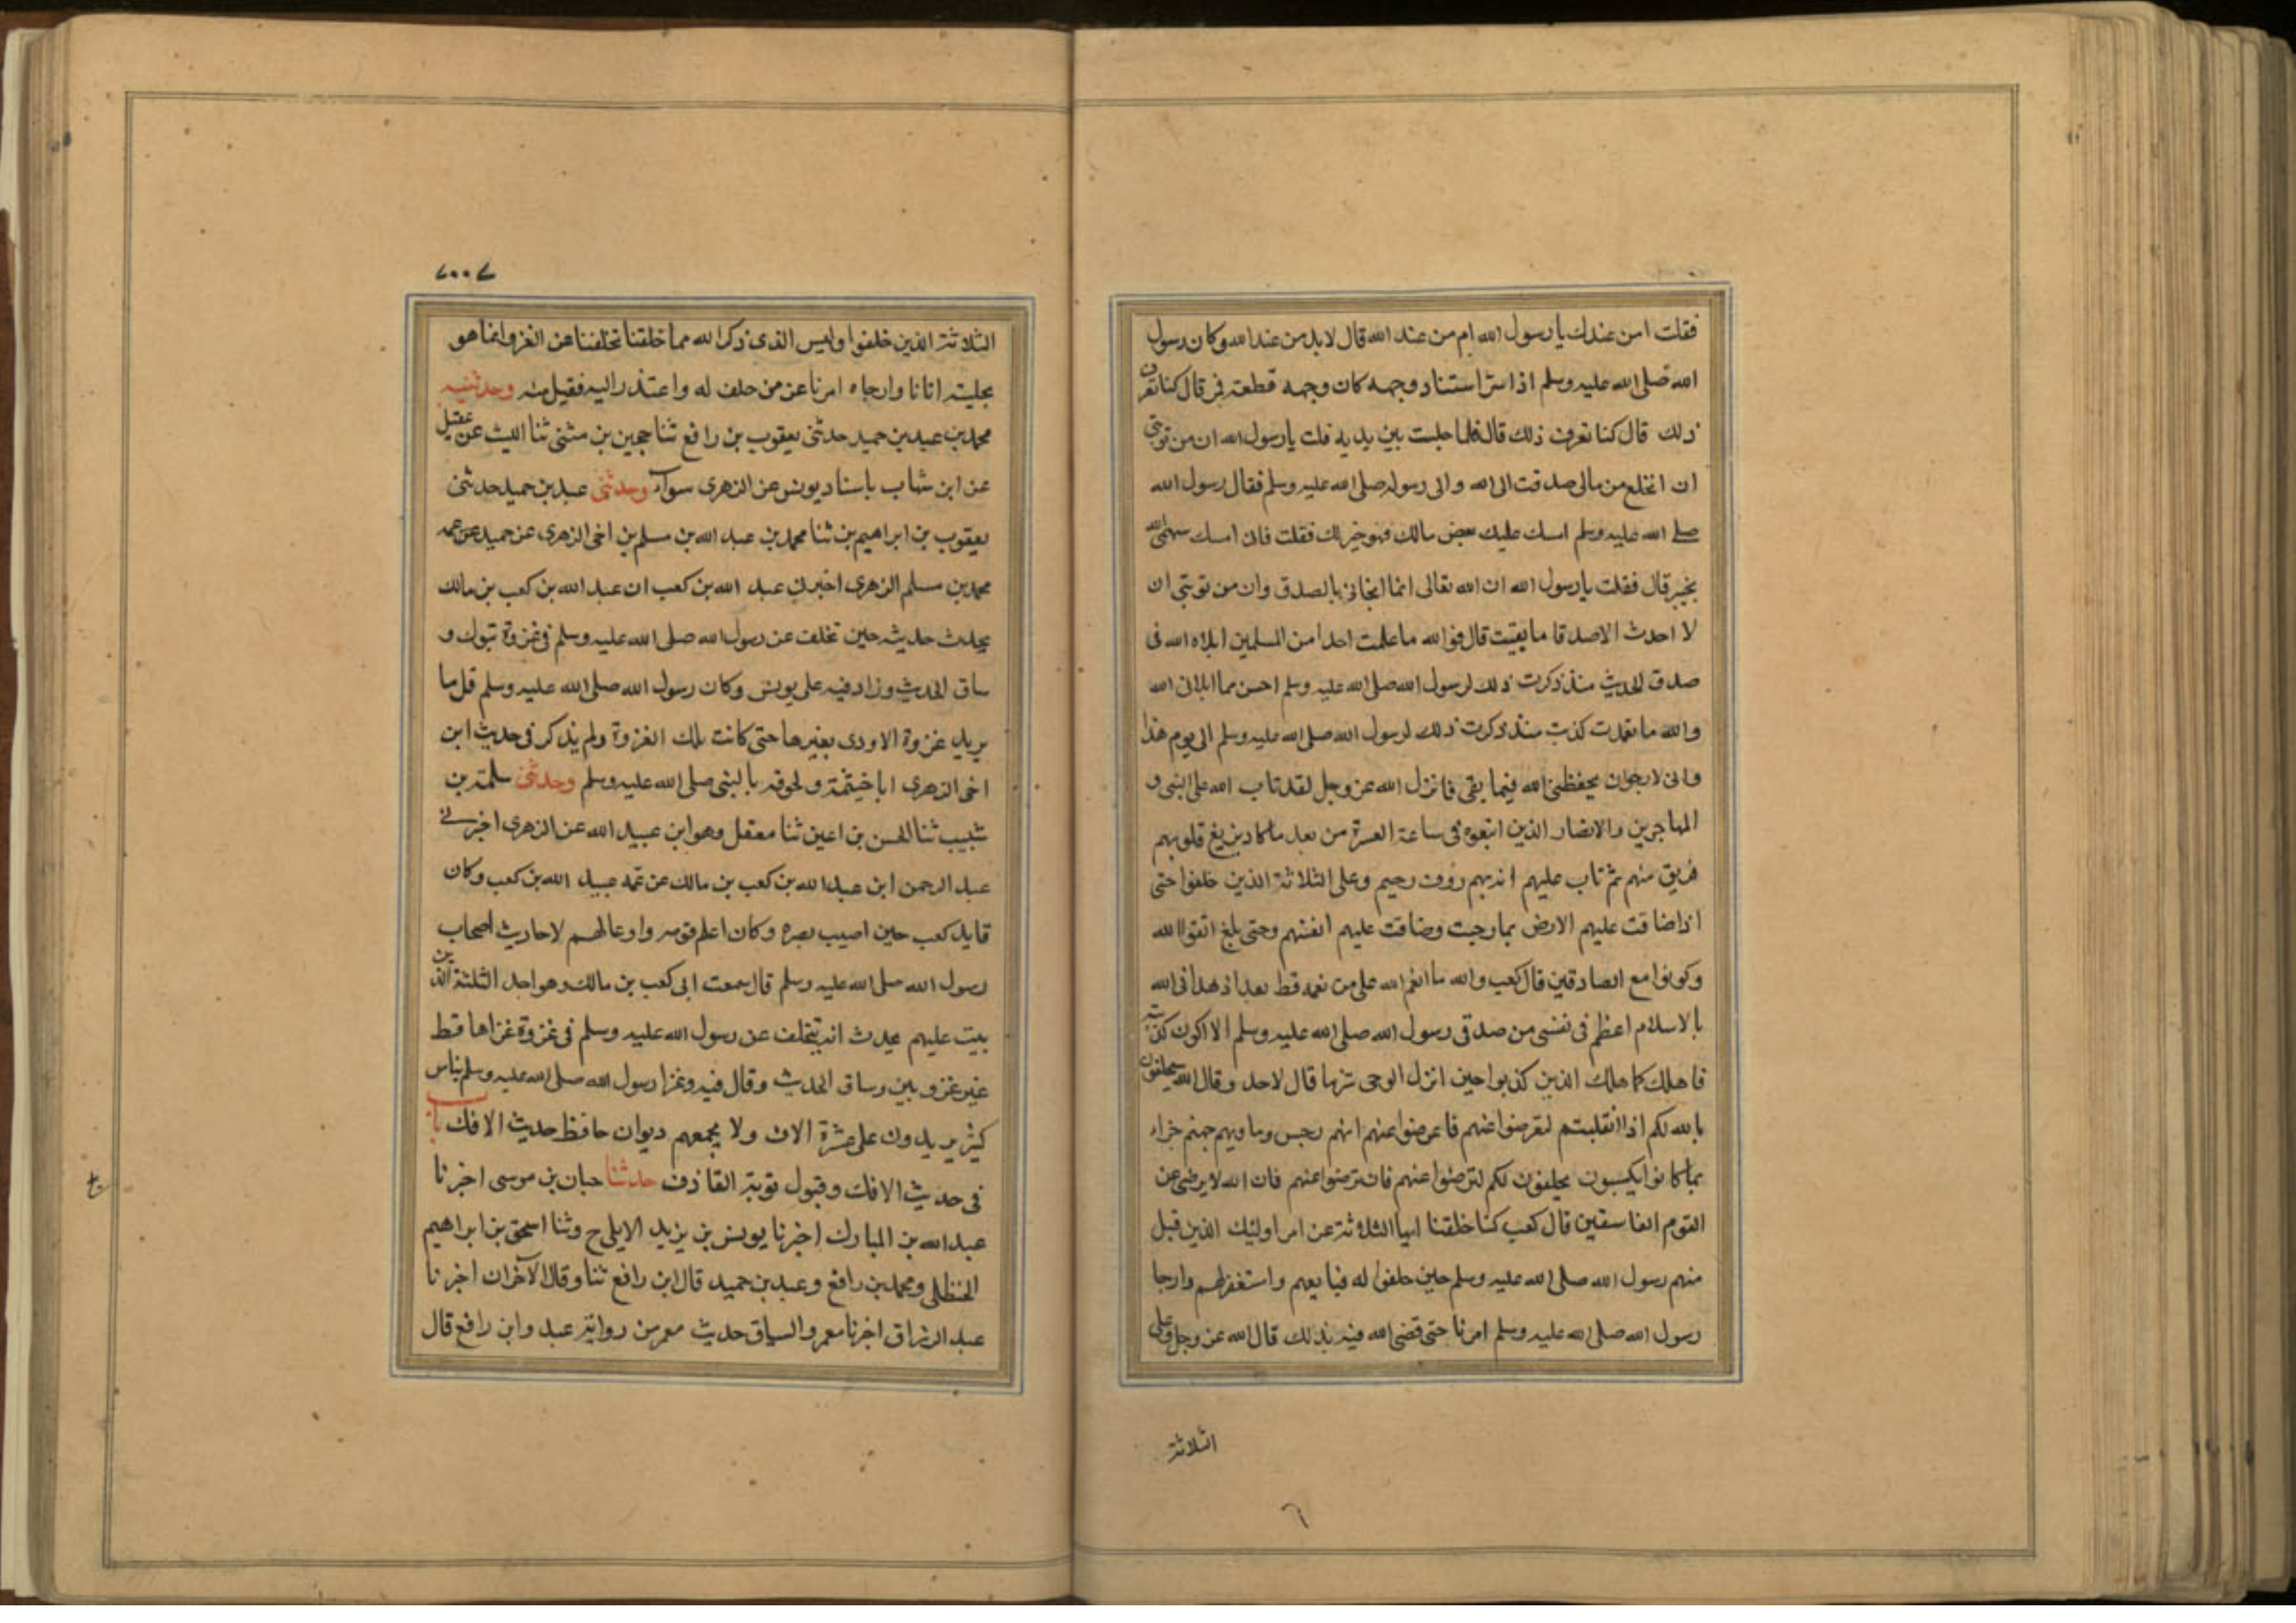 فقلت امن عندك يا رسول الله ام من عند الله قال لا بل من عند الله وكان رسول
الله صلى الله عليه وسلم اذا سر استنار وجهه كان وجهه قطعة قمر قال كنا نعرف
ذلك قال كنا نعرف ذلك قال فلما جلست بين يديه قلت يا رسول الله ان من توبتى
ان انخلع من مالى صدقت الى الله والى رسوله صلى الله عليه وسلم فقال رسول الله
صلى الله عليه وسلم امسك عليك بعض مالك فهو خير لك فقلت فانى امسك سهمى الله
بخيبر قال فقلت يا رسول الله ان الله تعالى انما انجانى بالصدق وان من توبتى ان
لا احدث الا صدقا ما بقيت قال فوالله ما علمت احدا من المسلمين ابلاه الله فى
صدق الحديث منذ ذكرت ذلك لرسول الله صلى الله عليه وسلم احسن مما ابلانى الله
والله ما تعمدت كذبت منذ ذكرت ذلك لرسول الله صلى الله عليه وسلم الى يوم هذا
وانى لارجوان يحفظنى الله فيما بقى فانزل الله عز وجل لقد تاب الله على النبى و
المهاجرين والانصار الذين اتبعوه فى ساعة العسرة من بعد ما كاد يزيغ قلوبهم
فريق منهم ثم تاب عليهم انه بهم رؤف رحيم وعلى الثلاثة الذين خلفوا حتى
اذا ضاقت عليهم الارض بما رحبت وضاقت عليهم انفسهم وحتى بلغ اتقوا الله
وكونوا مع الصادقين قال كعب والله ما انعم الله على من نعمه قط بعد اذ هدانى الله
بالاسلام اعظم فى نفسى من صدقى رسول الله صلى الله عليه وسلم الا اكون كذبته
فاهلك كما هلك الذين كذبوا حين انزل الوحى شرما قال لاحد وقال الله سيحلفون
بالله لكم اذا انقلبتم لتعرضوا عنهم فاعرضوا عنهم انهم رجس وماويهم جهنم جزاء
بما كانوا يكسبون يحلفون لكم لترضوا عنهم فان ترضوا عنهم فان الله لا يرضى عن
القوم الفاسقين قال كعب كنا خلفنا ايها الثلاثة عن امر اوليك الذين قبل
منهم رسول الله صلى الله عليه وسلم حين حلفوا له فبايعهم واستغفر لهم وارجا
رسول الله صلى الله عليه وسلم امرنا حتى قضى الله فيه بذلك قال الله عز وجل وعلى
الثلاثة
٦
٧٠٠٧
الثلاثة الذين خلفوا وليس الذى ذكر الله مما خلفنا تخلفنا عن الغزو وانما هو
تخليته ايانا وارجاه امرنا عن من حلف له واعتذر اليه فقبل منه وحدثنيه
محمد بن عبد بن حميد حدثنى يعقوب بن رافع ثنا حجين بن مثنى ثنا الليث عن عقيل
عن ابن شهاب باسناد يونس عن الزهرى سواء وحدثنى عبد بن حميد حدثنى
يعقوب بن ابراهيم بن ثنا محمد بن عبد الله بن مسلم بن اخى الزهرى عن حميد عن عمه
محمد بن مسلم الزهرى اخبرنى عبد الله بن كعب ان عبد الله بن كعب بن مالك
يحدث حديثه حين تخلف عن رسول الله صلى الله عليه وسلم فى غزوة تبوك و
ساق الحديث وزاد فيه على يونس وكان رسول الله صلى الله عليه وسلم قل ما
يريد غزوة الا ورى بغيرها حتى كانت تلك الغزوة ولم يذكر فى حديث ابن
اخى الزهرى ابا خيثمة ولحوقه بالنبى صلى الله عليه وسلم وحدثنى سلمة بن
شبيب ثنا الحسن بن اعين ثنا معقل وهو ابن عبيد الله عن الزهرى اخبرنى
عبد الرحمن ابن عبد الله بن كعب بن مالك عن عمه عبيد الله بن كعب وكان
قايد كعب حين اصيب بصره وكان اعلم قومه واوعا لهم لاحاديث اصحاب
رسول الله صلى الله عليه وسلم قال سمعت ابى كعب بن مالك وهو احد الثلثة الذين
تيب عليهم يحدث انه يتخلف عن رسول الله عليه وسلم فى غزوة غزاها قط
غير غزوبين وساق الحديث وقال فيه وغزا رسول الله صلى الله عليه وسلم بناس
كثير يريدون على عشرة الاف ولا يجمعهم ديوان حافظ حديث الافك باب
فى حديث الافك وقبول توبة القاذف حدثنا حبان بن موسى اخبرنا
عبد الله بن المبارك اخبرنا يونس بن يزيد الايلى ح وثنا اسحق بن ابراهيم
الحنظلى ومحمد بن رافع وعبد بن حميد قال ابن رافع ثنا وقال الآخران اخبرنا
عبد الرزاق اخبرنا معمر والسياق حديث معمر من رواية عبد وابن رافع قال